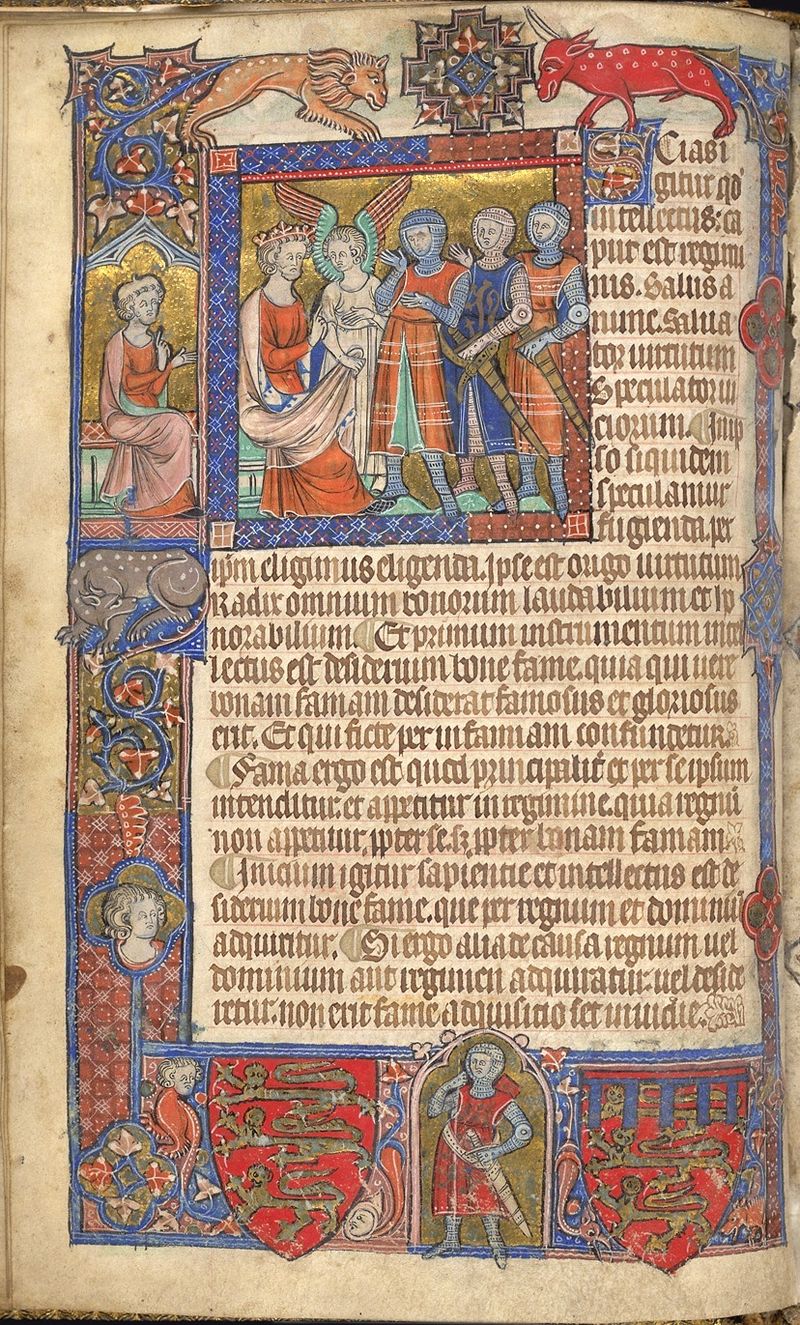 Scias i
gitur qd'
intellectus: ca
put est regimi
nis. Salus a
nime. Salua
tor uirtutum
Speculator ui
ciorum. ¶ In ip
so siquidem
speculamur
fugienda. per
ip̄m eligimus eligenda. ipse est origo uirtutum
Radix omnium bonorum laudabilium et ho
norabilium. ¶ Et primum instrumentum intel
lectus est desiderium bone fame. quia qui uere
bonam famam desiderat famosus et gloriosus
erit. Et qui ficte per infamiam confundetur.
¶ Fama ergo est quod principalit' et per se ipsum
intenditur. et appetitur in regimine. quia regnū
non appetitur ꝓpter se. sꝫ ꝓpter bonam famam
¶ Inicium igitur sapientie et intellectus est de
siderium bone fame. que per regnum et dominiū
adquiritur. ¶ Si ergo alia de causa regnum uel
dominium aut regimen adquiratur: uel deside
retur. non erit fame adquisicio set inuidie.